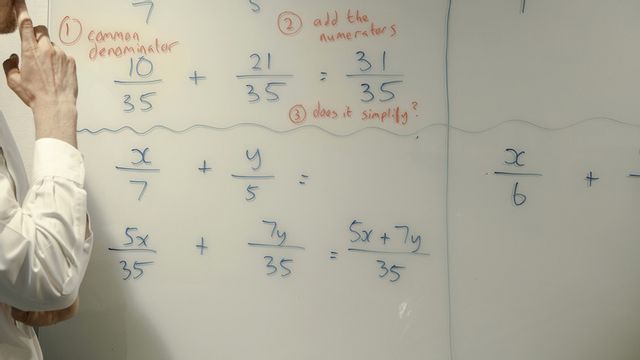 7 5
① common denominator
② add the numerators
10/35 + 21/35 = 31/35
③ does it simplify?
x/7 + y/5 =
5x/35 + 7y/35 = 5x + 7y/35
x/6 +